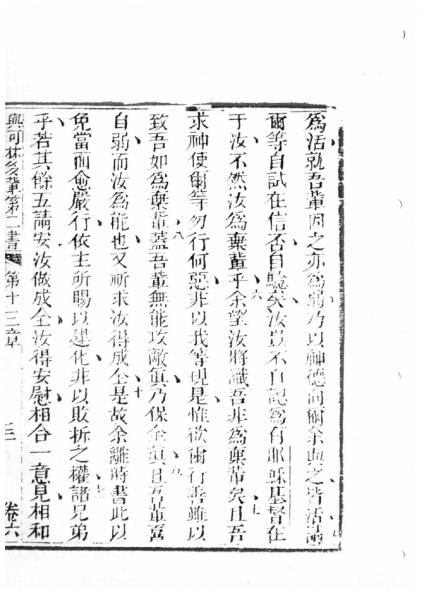 爲活就吾輩因之亦爲弱乃以神德向爾余與之皆活請
爾等自試在信否自驗矣汝豈不自認爲有耶穌基督在
于汝不然汝爲棄輩乎余望汝將識吾非爲棄輩矣且吾
求神使爾等勿行何惡非以我等現是惟欲爾行善雖以
致吾如爲棄輩蓋吾輩無能攻敵眞乃保余眞且吾輩喜
自弱而汝爲能也又祈求汝得成全是故余離時書此以
免當面愈嚴行依主所賜以建化非以敗拆之權諸兄弟
乎若其餘五請安汝做成全汝得安慰相合一意見相和
與哥林多輩第二書 第十三章 三 卷六
六
七
八
九
十
十一